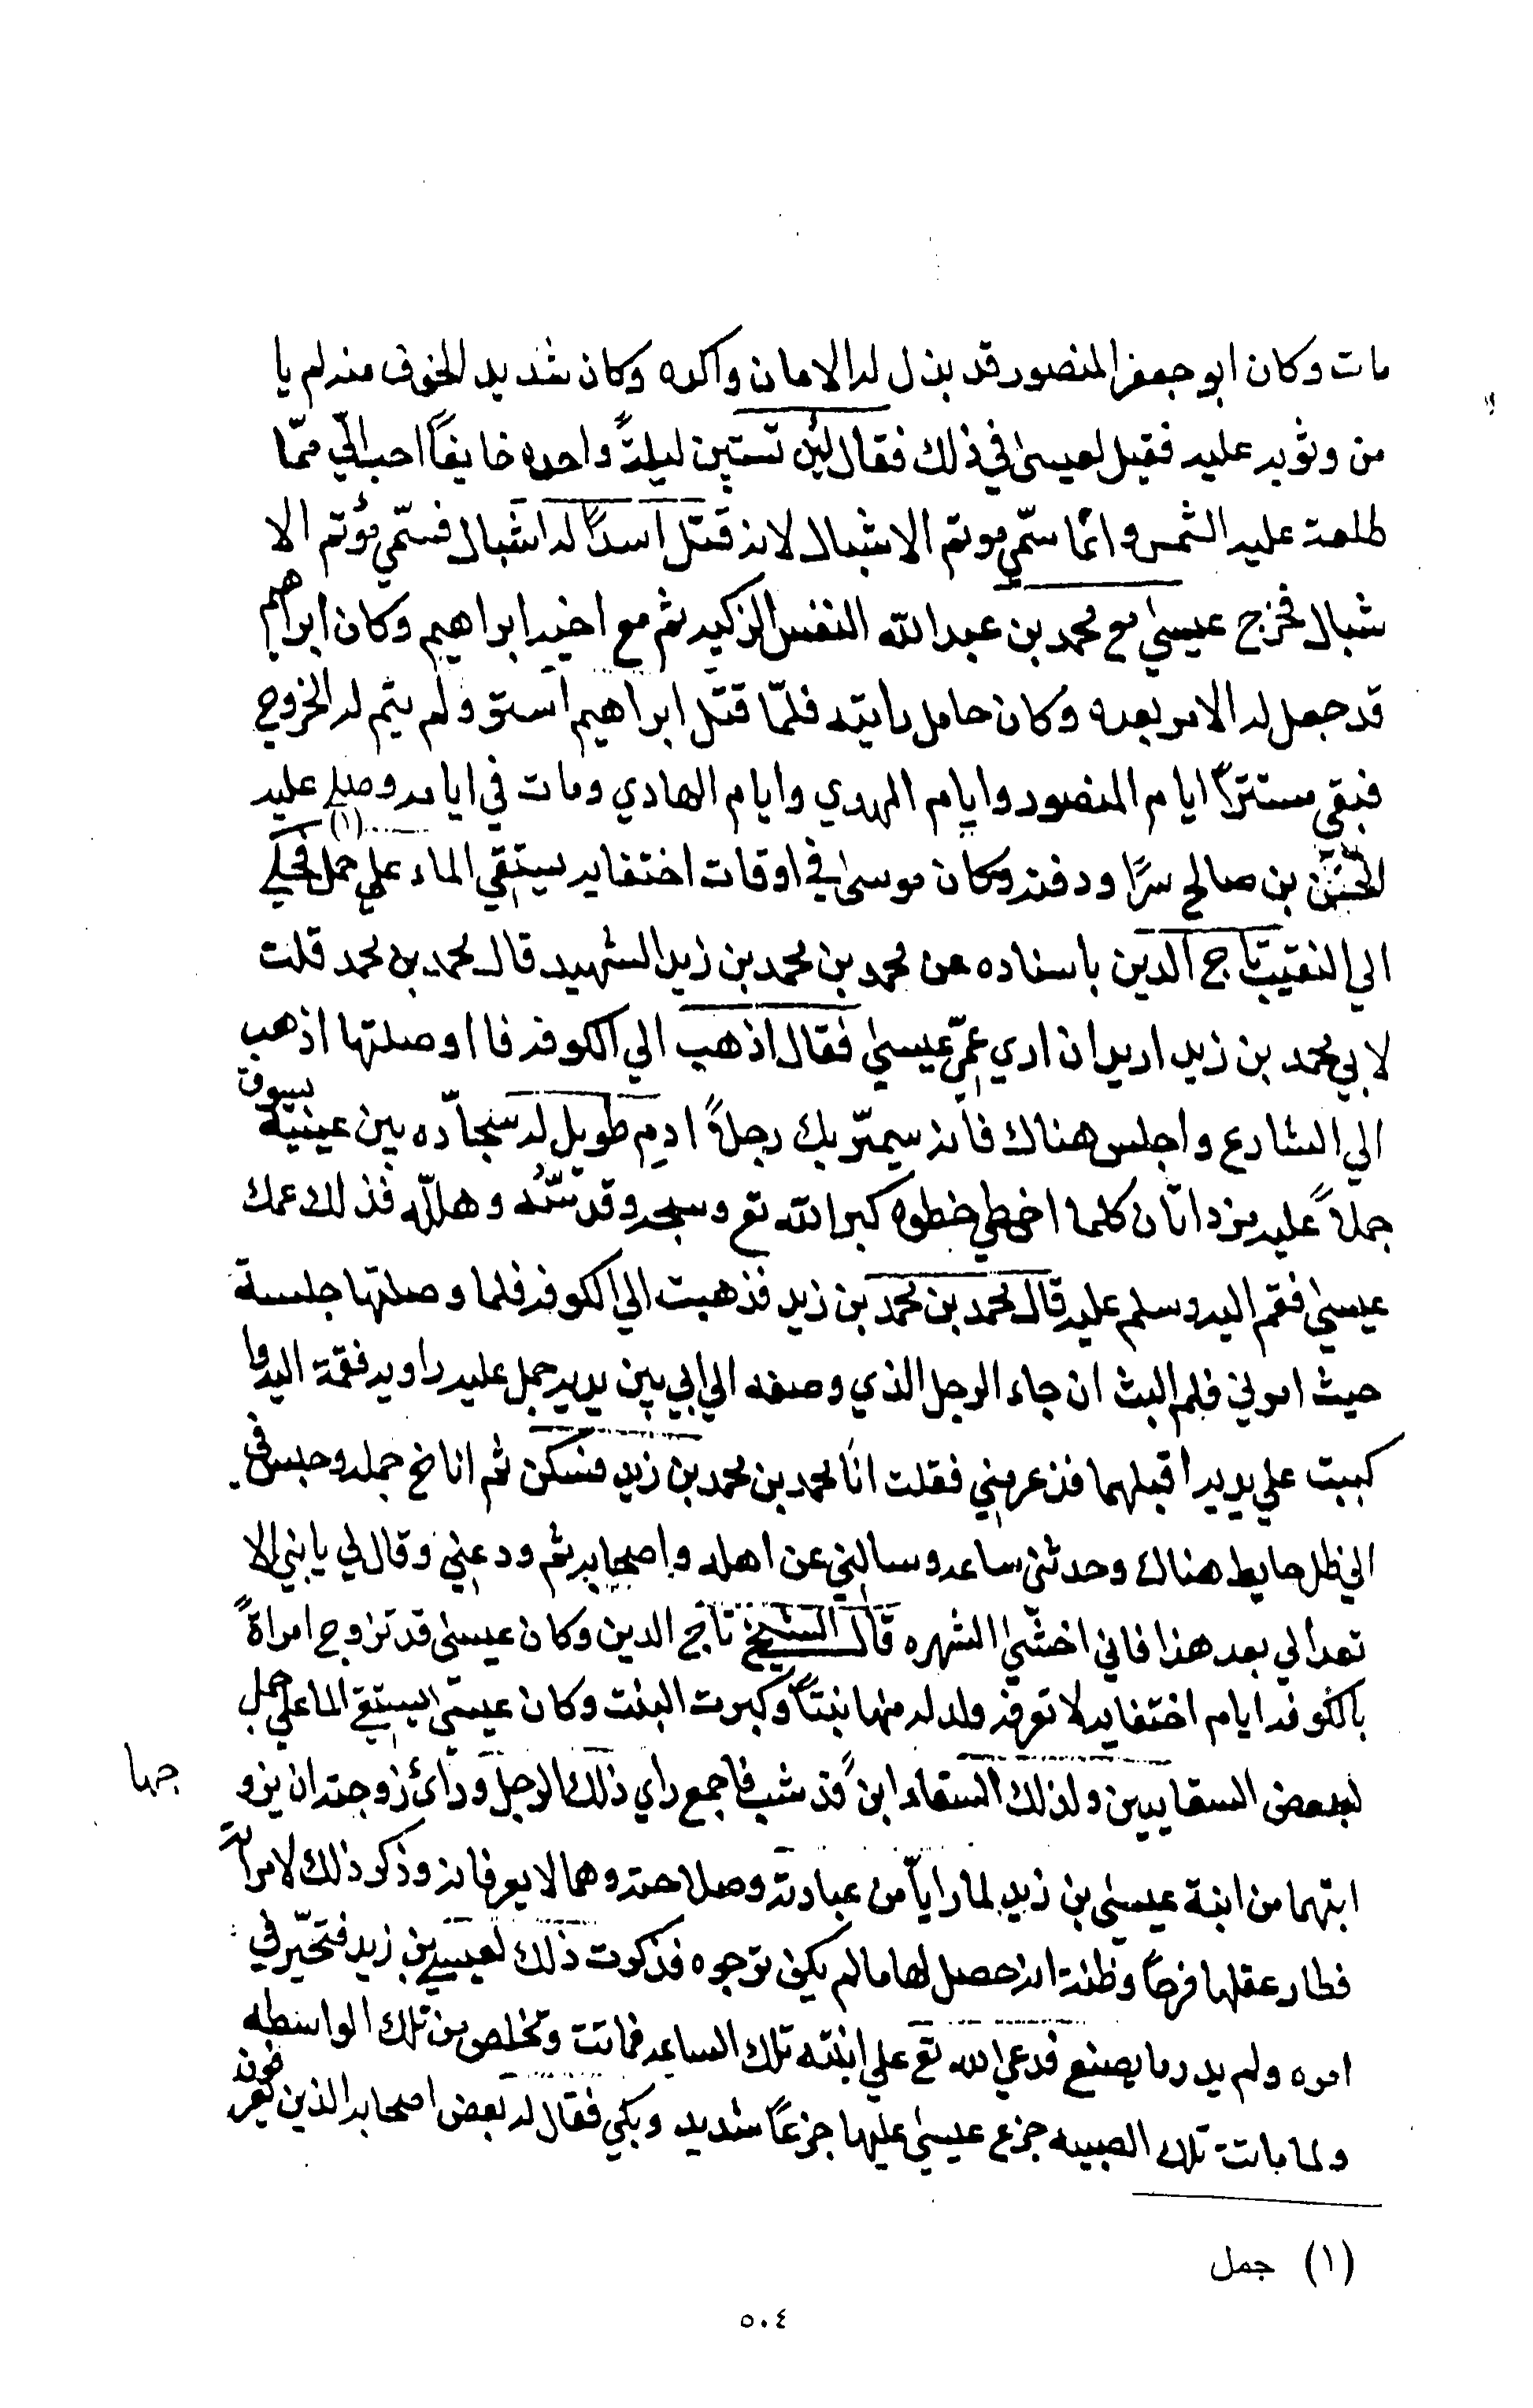 مات وكان ابو جعفر المنصور قد بذل له الامان واكده وكان شديد الخوف منه لم يا
من وثوبه عليه فقيل لعيسى في ذلك فقال لئن تستبين ليلةً واحده خايفاً احب اليّ ممّا
طلعت عليه الشمس وانّما سمّي موتم الاشبال لانه قتل اسداً له اشبال فسمّي مؤتم الا
شبال فخرج عيسى مع محمد بن عبد الله النفس الزكيه ثم مع اخيه ابراهيم وكان ابراهيم
قد جعل له الامر بعده وكان حامل رايته فلمّا قتل ابراهيم استتر ولم يتم له الخروج
فبقي مستتراً ايام المنصور وايام المهدي وايام الهادي ومات في ايامه وصلي عليه
الحسن بن صالح سرّا ودفنه وكان موسى في اوقات اختفايه يستقي الماء علي حمل (١) فحكي
الي النقيب تاج الدين باسناده عن محمد بن محمد بن زيد الشهيد قال محمد بن محمد قلت
لابي محمد بن زيد اريد ان اري عمّي عيسى فقال اذهب الي الكوفه فاا وصلتها اذهب
الي الشارع واجلس هناك فانه سيمرّ بك رجلاً ادم طويل له سجّاده بين عينيه يسوق
جملاً عليه مزادتان كلما اخطي خطوه كبر الله تع وسبحه وقدسه وهلّله فذلك عمك
عيسى فقم اليه وسلم عليه قال محمد بن محمد بن زيد فذهبت الي الكوفه فلما وصلتها جلسة
حيث امرني فلم البث ان جاء الرجل الذي وصفه الي ابي بين يديه جمل عليه راويه فقمة اليه وا
كببت علي يديه اقبلهما فذعر مني فقلت انا محمد بن محمد بن زيد فسكن ثم اناخ جمله وجلس في
الي ظل حايط هناك وحدثني ساعه وسالني عن اهله واصحابه ثم ودعني وقال لي يا بني لا
تعد الي بعد هذا فاني اخشى الشهره قال الشيخ تاج الدين وكان عيسى قد تزوج امراةً
بالكوفه ايام اختفايه لا تعرفه ولد له منها بنتاً وكبرت البنت وكان عيسى يستقي الما علي جمل
لبعض السقايين ولذلك السقاء ابن قد شب فاجمع راي ذلك الرجل وراي زوجته ان يزو
جها
ابنهما من ابنة عيسى بن زيد لما رايا من عبادته وصلاحته وهما لا يعرفانه وذكر ذلك لامراته
فطار عقلها فرحاً وظنة انه حصل لها ما لم تكن ترجوه فذكرت ذلك لعيسي بن زيد فتحيّر في
امره ولم يدر ما يصنع فدعي الله تع علي ابنته تلك الساعه فماتت وتخلص من تلك الواسطه
ولما ماتت تلك الصبيه جزع عيسى عليها جزعاً شديد وبكي فقال له بعض اصحابه الذين يعرفونه
(١) جمل
٥٠٤